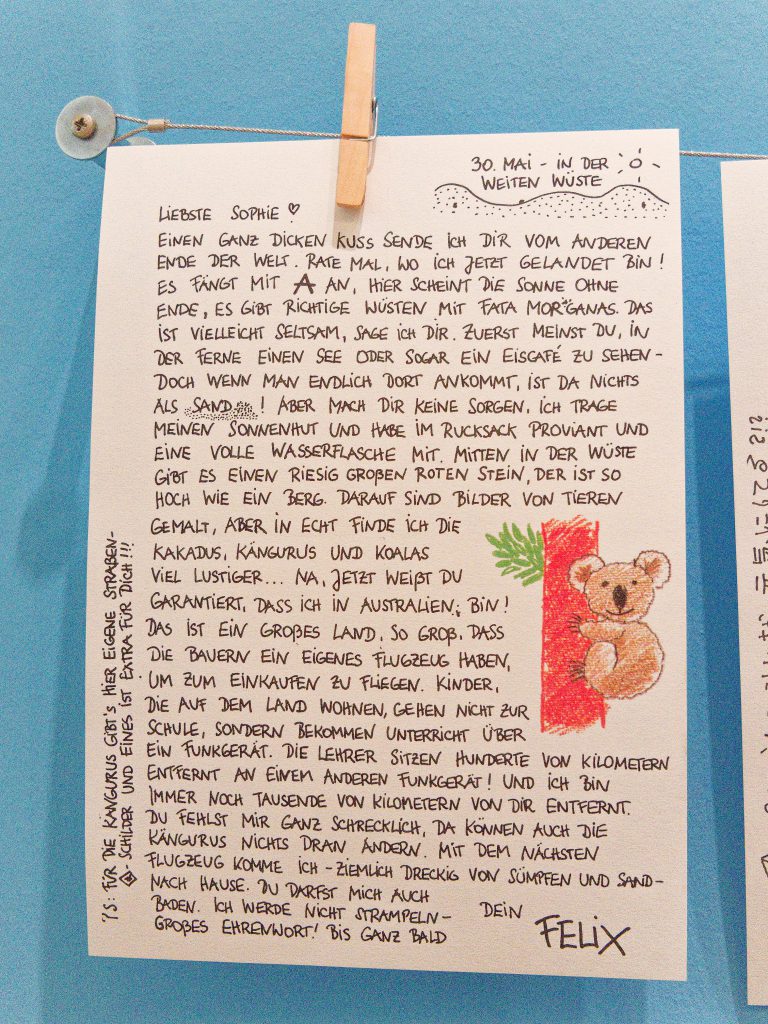 30. MAI - IN DER
WEITEN WÜSTE
LIEBSTE SOPHIE ♡
EINEN GANZ DICKEN KUSS SENDE ICH DIR VOM ANDEREN
ENDE DER WELT. RATE MAL, WO ICH JETZT GELANDET BIN!
ES FÄNGT MIT A AN, HIER SCHEINT DIE SONNE OHNE
ENDE, ES GIBT RICHTIGE WÜSTEN MIT FATA MORGANAS. DAS
IST VIELLEICHT SELTSAM, SAGE ICH DIR. ZUERST MEINST DU, IN
DER FERNE EINEN SEE ODER SOGAR EIN EISCAFÉ ZU SEHEN -
DOCH WENN MAN ENDLICH DORT ANKOMMT, IST DA NICHTS
ALS SAND! ABER MACH DIR KEINE SORGEN, ICH TRAGE
MEINEN SONNENHUT UND HABE IM RUCKSACK PROVIANT UND
EINE VOLLE WASSERFLASCHE MIT. MITTEN IN DER WÜSTE
GIBT ES EINEN RIESIG GROßEN ROTEN STEIN, DER IST SO
HOCH WIE EIN BERG. DARAUF SIND BILDER VON TIEREN
GEMALT, ABER IN ECHT FINDE ICH DIE
KAKADUS, KÄNGURUS UND KOALAS
VIEL LUSTIGER... NA, JETZT WEIßT DU
GARANTIERT, DASS ICH IN AUSTRALIEN BIN!
DAS IST EIN GROßES LAND, SO GROß, DASS
DIE BAUERN EIN EIGENES FLUGZEUG HABEN,
UM ZUM EINKAUFEN ZU FLIEGEN. KINDER,
DIE AUF DEM LAND WOHNEN, GEHEN NICHT ZUR
SCHULE, SONDERN BEKOMMEN UNTERRICHT ÜBER
EIN FUNKGERÄT. DIE LEHRER SITZEN HUNDERTE VON KILOMETERN
ENTFERNT AN EINEM ANDEREN FUNKGERÄT! UND ICH BIN
IMMER NOCH TAUSENDE VON KILOMETERN VON DIR ENTFERNT.
DU FEHLST MIR GANZ SCHRECKLICH, DA KÖNNEN AUCH DIE
KÄNGURUS NICHTS DRAN ÄNDERN. MIT DEM NÄCHSTEN
FLUGZEUG KOMME ICH - ZIEMLICH DRECKIG VON SÜMPFEN UND SAND -
NACH HAUSE. DU DARFST MICH AUCH
BADEN. ICH WERDE NICHT STRAMPELN -
GROßES EHRENWORT! BIS GANZ BALD
DEIN
FELIX
PS: FÜR DIE KÄNGURUS GIBT'S HIER EIGENE STRAßEN-
SCHILDER UND EINES IST EXTRA FÜR DICH!!!